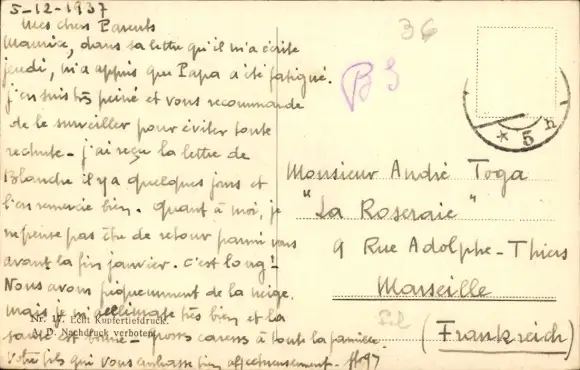 5-12-1937
Mes chers Parents
Maurice, dans sa lettre qu'il m'a écrite
jeudi, m'a appris que Papa a été fatigué.
j'en suis très peiné et vous recommande
de le surveiller pour éviter toute
rechute - j'ai reçu la lettre de
Blanche il y a quelques jours et
l'en remercie bien. Quant à moi, je
ne pense pas être de retour parmi vous
avant la fin janvier. C'est long!
Nous avons fréquemment de la neige.
mais je m'acclimate très bien et la
santé est bonne - caresses à toute la famille.
Votre fils qui vous embrasse bien affectueusement -
Nr. 17. Echt Kupfertiefdruck.
A. D. Nachdruck verboten.
36
B3
* 5 n
Monsieur André Toga
"La Roseraie"
9 Rue Adolphe-Thiers
Marseille
(Frankreich)